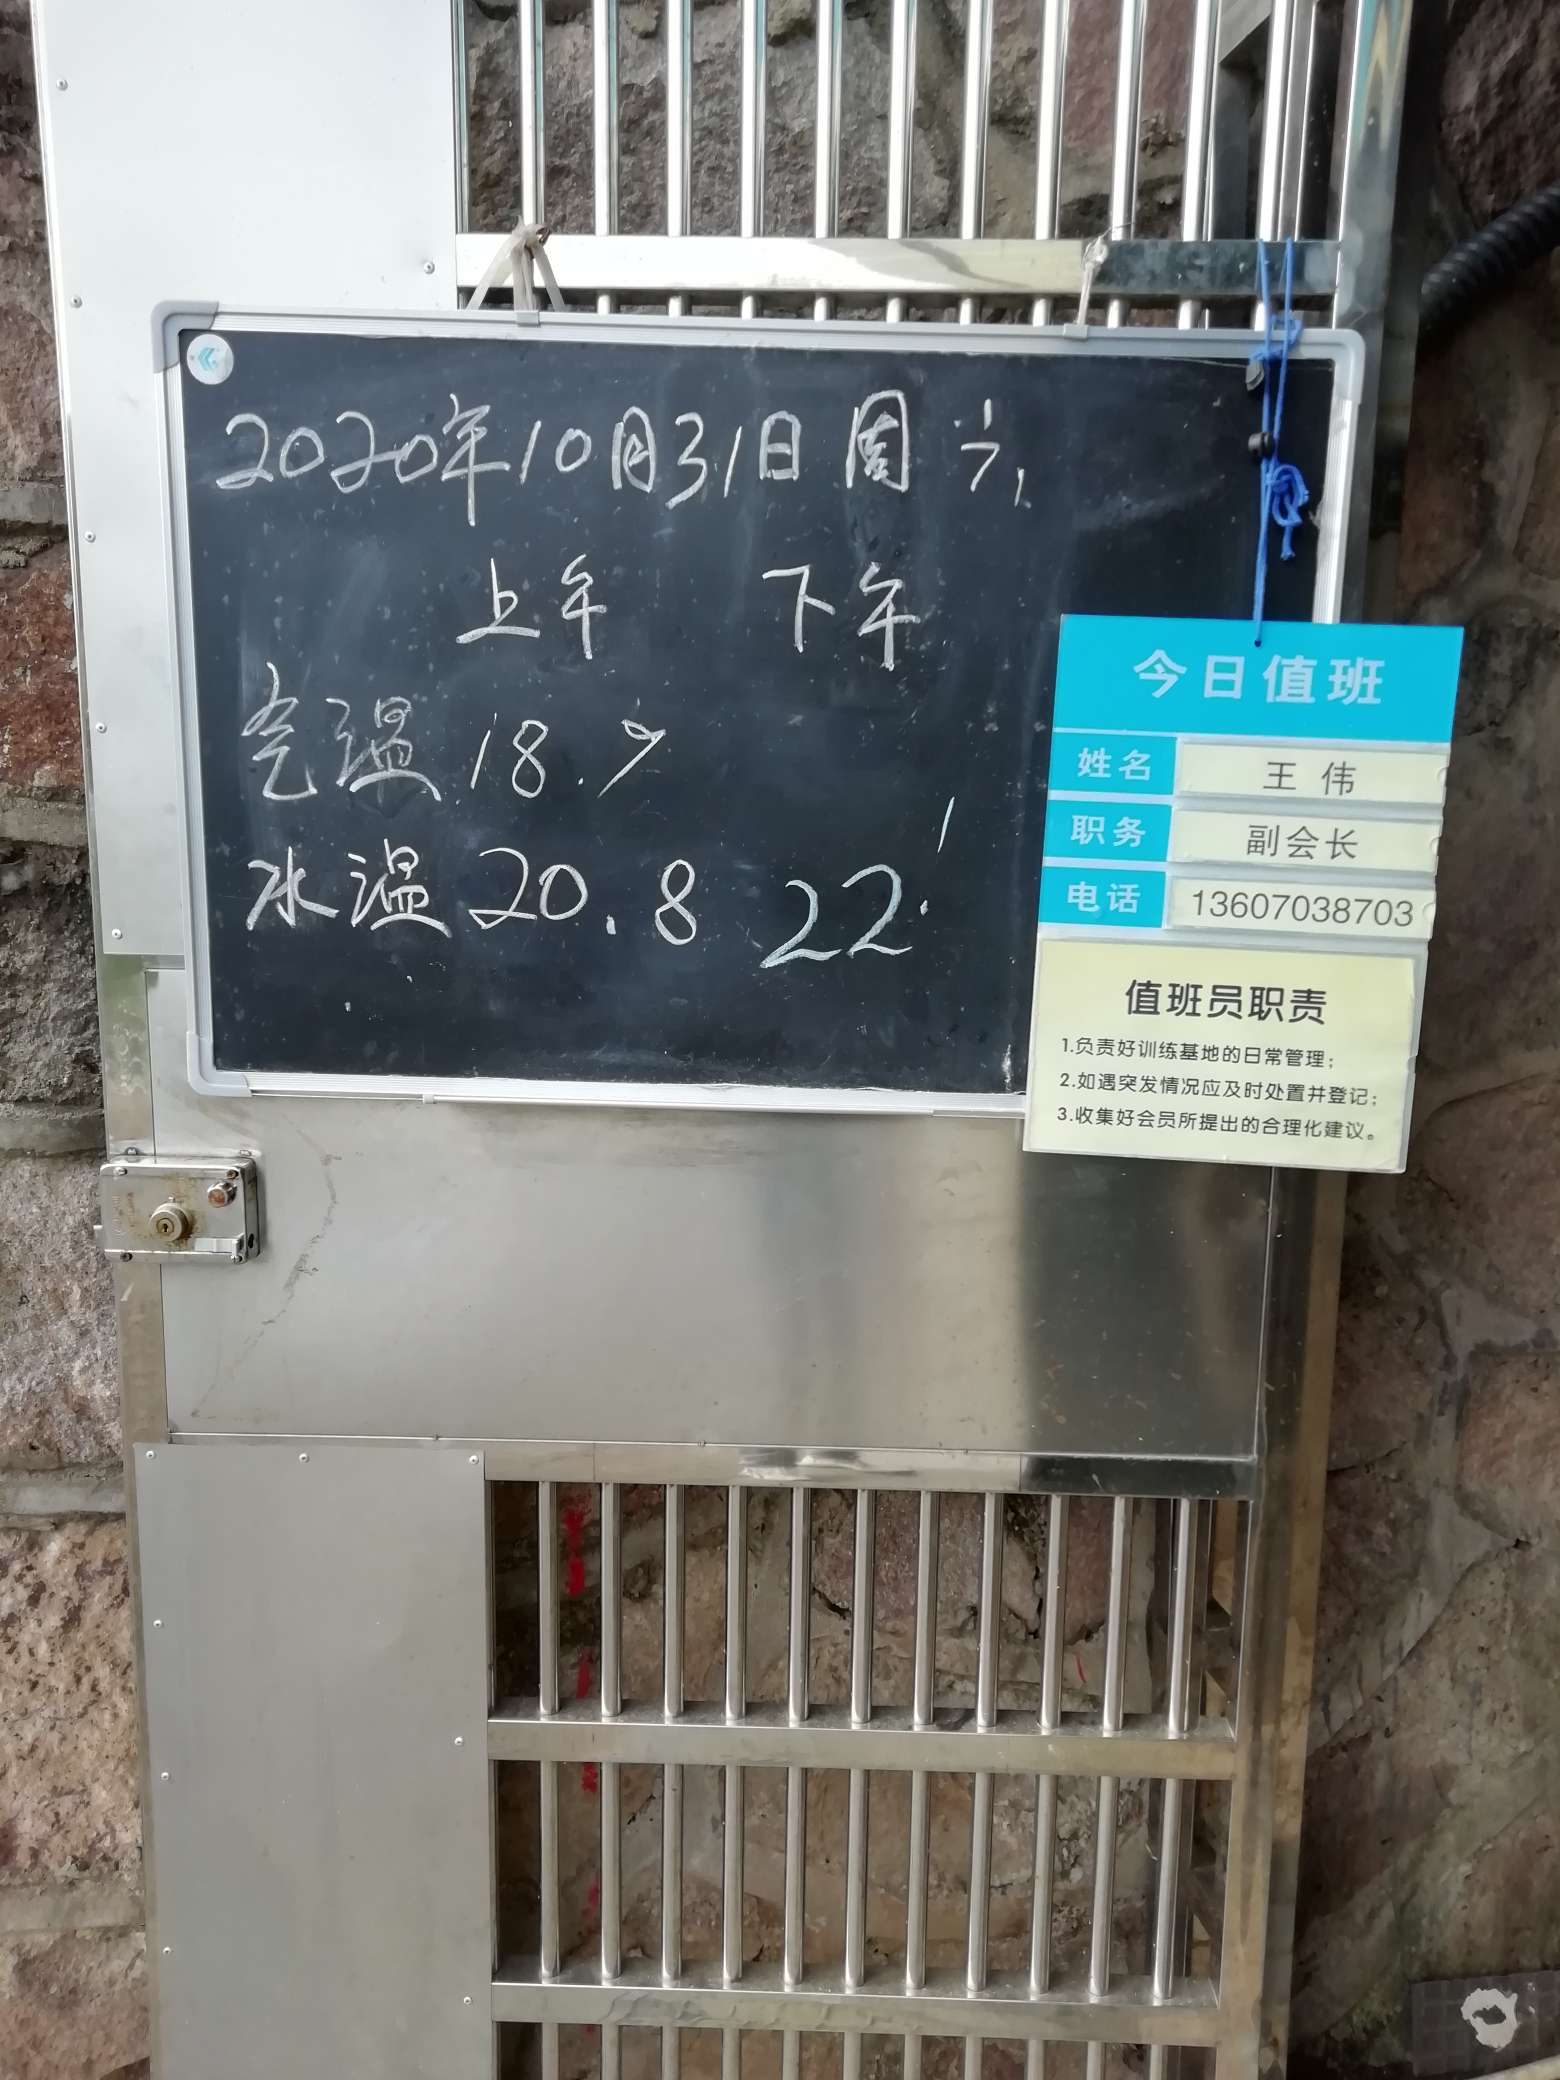 2020年10月31日周六
上午 下午
气温 18.7
水温 20.8 22.
今日值班
姓名 王伟
职务 副会长
电话 13607038703
值班员职责
1.负责好训练基地的日常管理；
2.如遇突发情况应及时处置并登记；
3.收集好会员所提出的合理化建议。